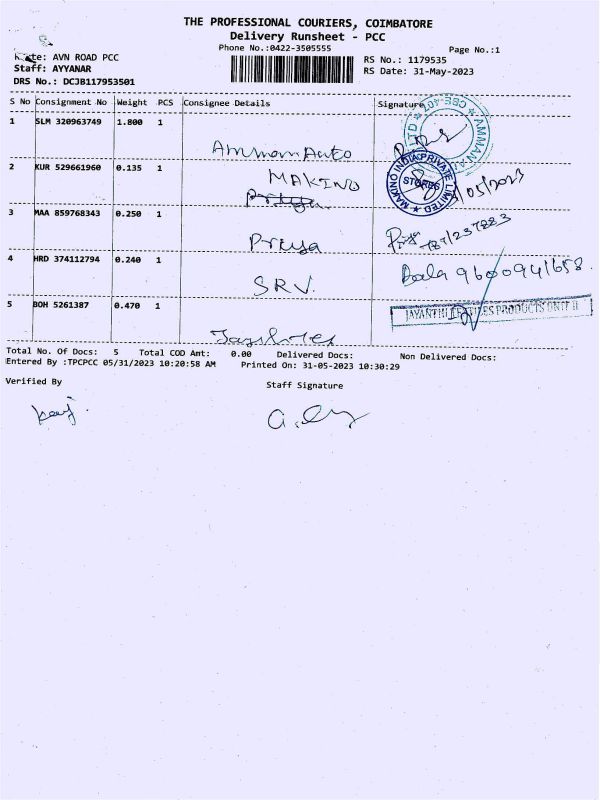 THE PROFESSIONAL COURIERS, COIMBATORE
Delivery Runsheet - PCC
Phone No.:0422-3505555
Page No.:1
AVN ROAD PCC
RS No.: 1179535
Staff: AYYANAR
RS Date: 31-May-2023
DRS No.: DCJB117953501
S No Consignment No Weight PCS Consignee Details Signature
1 SLM 320963749 1.800 1
Ammon Auto
2 KUR 529661960 0.135 1
MAKINO
MAKINO INDIA PRIVATE LIMITED
STORES
/05/2023
3 MAA 859768343 0.250 1
Priya
4 HRD 374112794 0.240 1
SRV.
Bala 9600941658.
5 BOH 5261387 0.470 1
JAYANTHI TEXTILES PRODUCTS UNIT II
Total No. Of Docs: 5 Total COD Amt: 0.00 Delivered Docs: Non Delivered Docs:
Entered By :TPCPCC 05/31/2023 10:20:58 AM Printed On: 31-05-2023 10:30:29
Verified By
Staff Signature